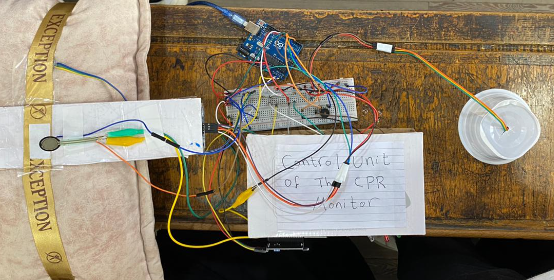 EXCEPTION
EXCEPTION
Control Unit
of The CPR
Monitor